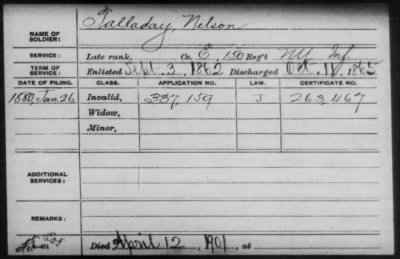 NAME OF SOLDIER: Talladay, Nelson
SERVICE: Late rank, Co. E, 150 Reg't NY Inf
TERM OF SERVICE: Enlisted Sept. 3, 1862 Discharged Oct. 1865
DATE OF FILING. CLASS. APPLICATION NO. LAW. CERTIFICATE NO.
1880, Jan. 26 Invalid, 337,159 J 263,467
Widow,
Minor,
ADDITIONAL SERVICES:
REMARKS:
Died April 12, 1901, at